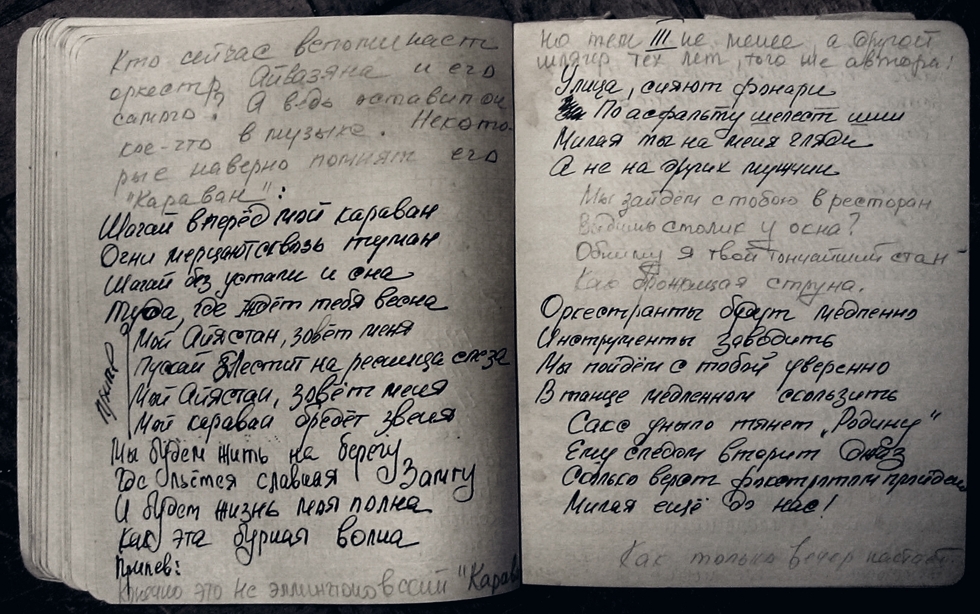 Кто сейчас вспоминает
оркестр Айвазяна и его
самого? А ведь оставил он
кое-что в музыке. Некото-
рые наверно помнят его
"Караван":
Шагай вперёд мой караван
Огни мерцают сквозь туман
Шагай без устали и сна
Туда, где ждёт тебя весна
Мой Айястан, зовёт меня
Пускай блестит на реснице слеза
Мой Айястан, зовёт меня
Мой караван бредёт звеня
Мы будем жить на берегу
Где льётся славная Зангу
И будет жизнь моя полна
Как эта бурная волна
Припев:
Конечно это не эллингтоновский "Карава
но тем III не менее, а другой
шлягер тех лет, того же автора!
Улица, сияют фонари
По асфальту шелест шин
Милая ты на меня гляди
А не на других мужчин
Мы зайдём с тобою в ресторан
Видишь столик у окна?
Обниму я твой тончайший стан
Как звонкая струна.
Оркестранты будут медленно
Инструменты заводить
Мы пойдём с тобой уверенно
В танце медленном скользить
Сакс уныло тянет „Родину"
Ему следом вторит джаз
Сколько вёрст фокстротом пройдено
Милая ещё до нас!
Как только вечер настаёт